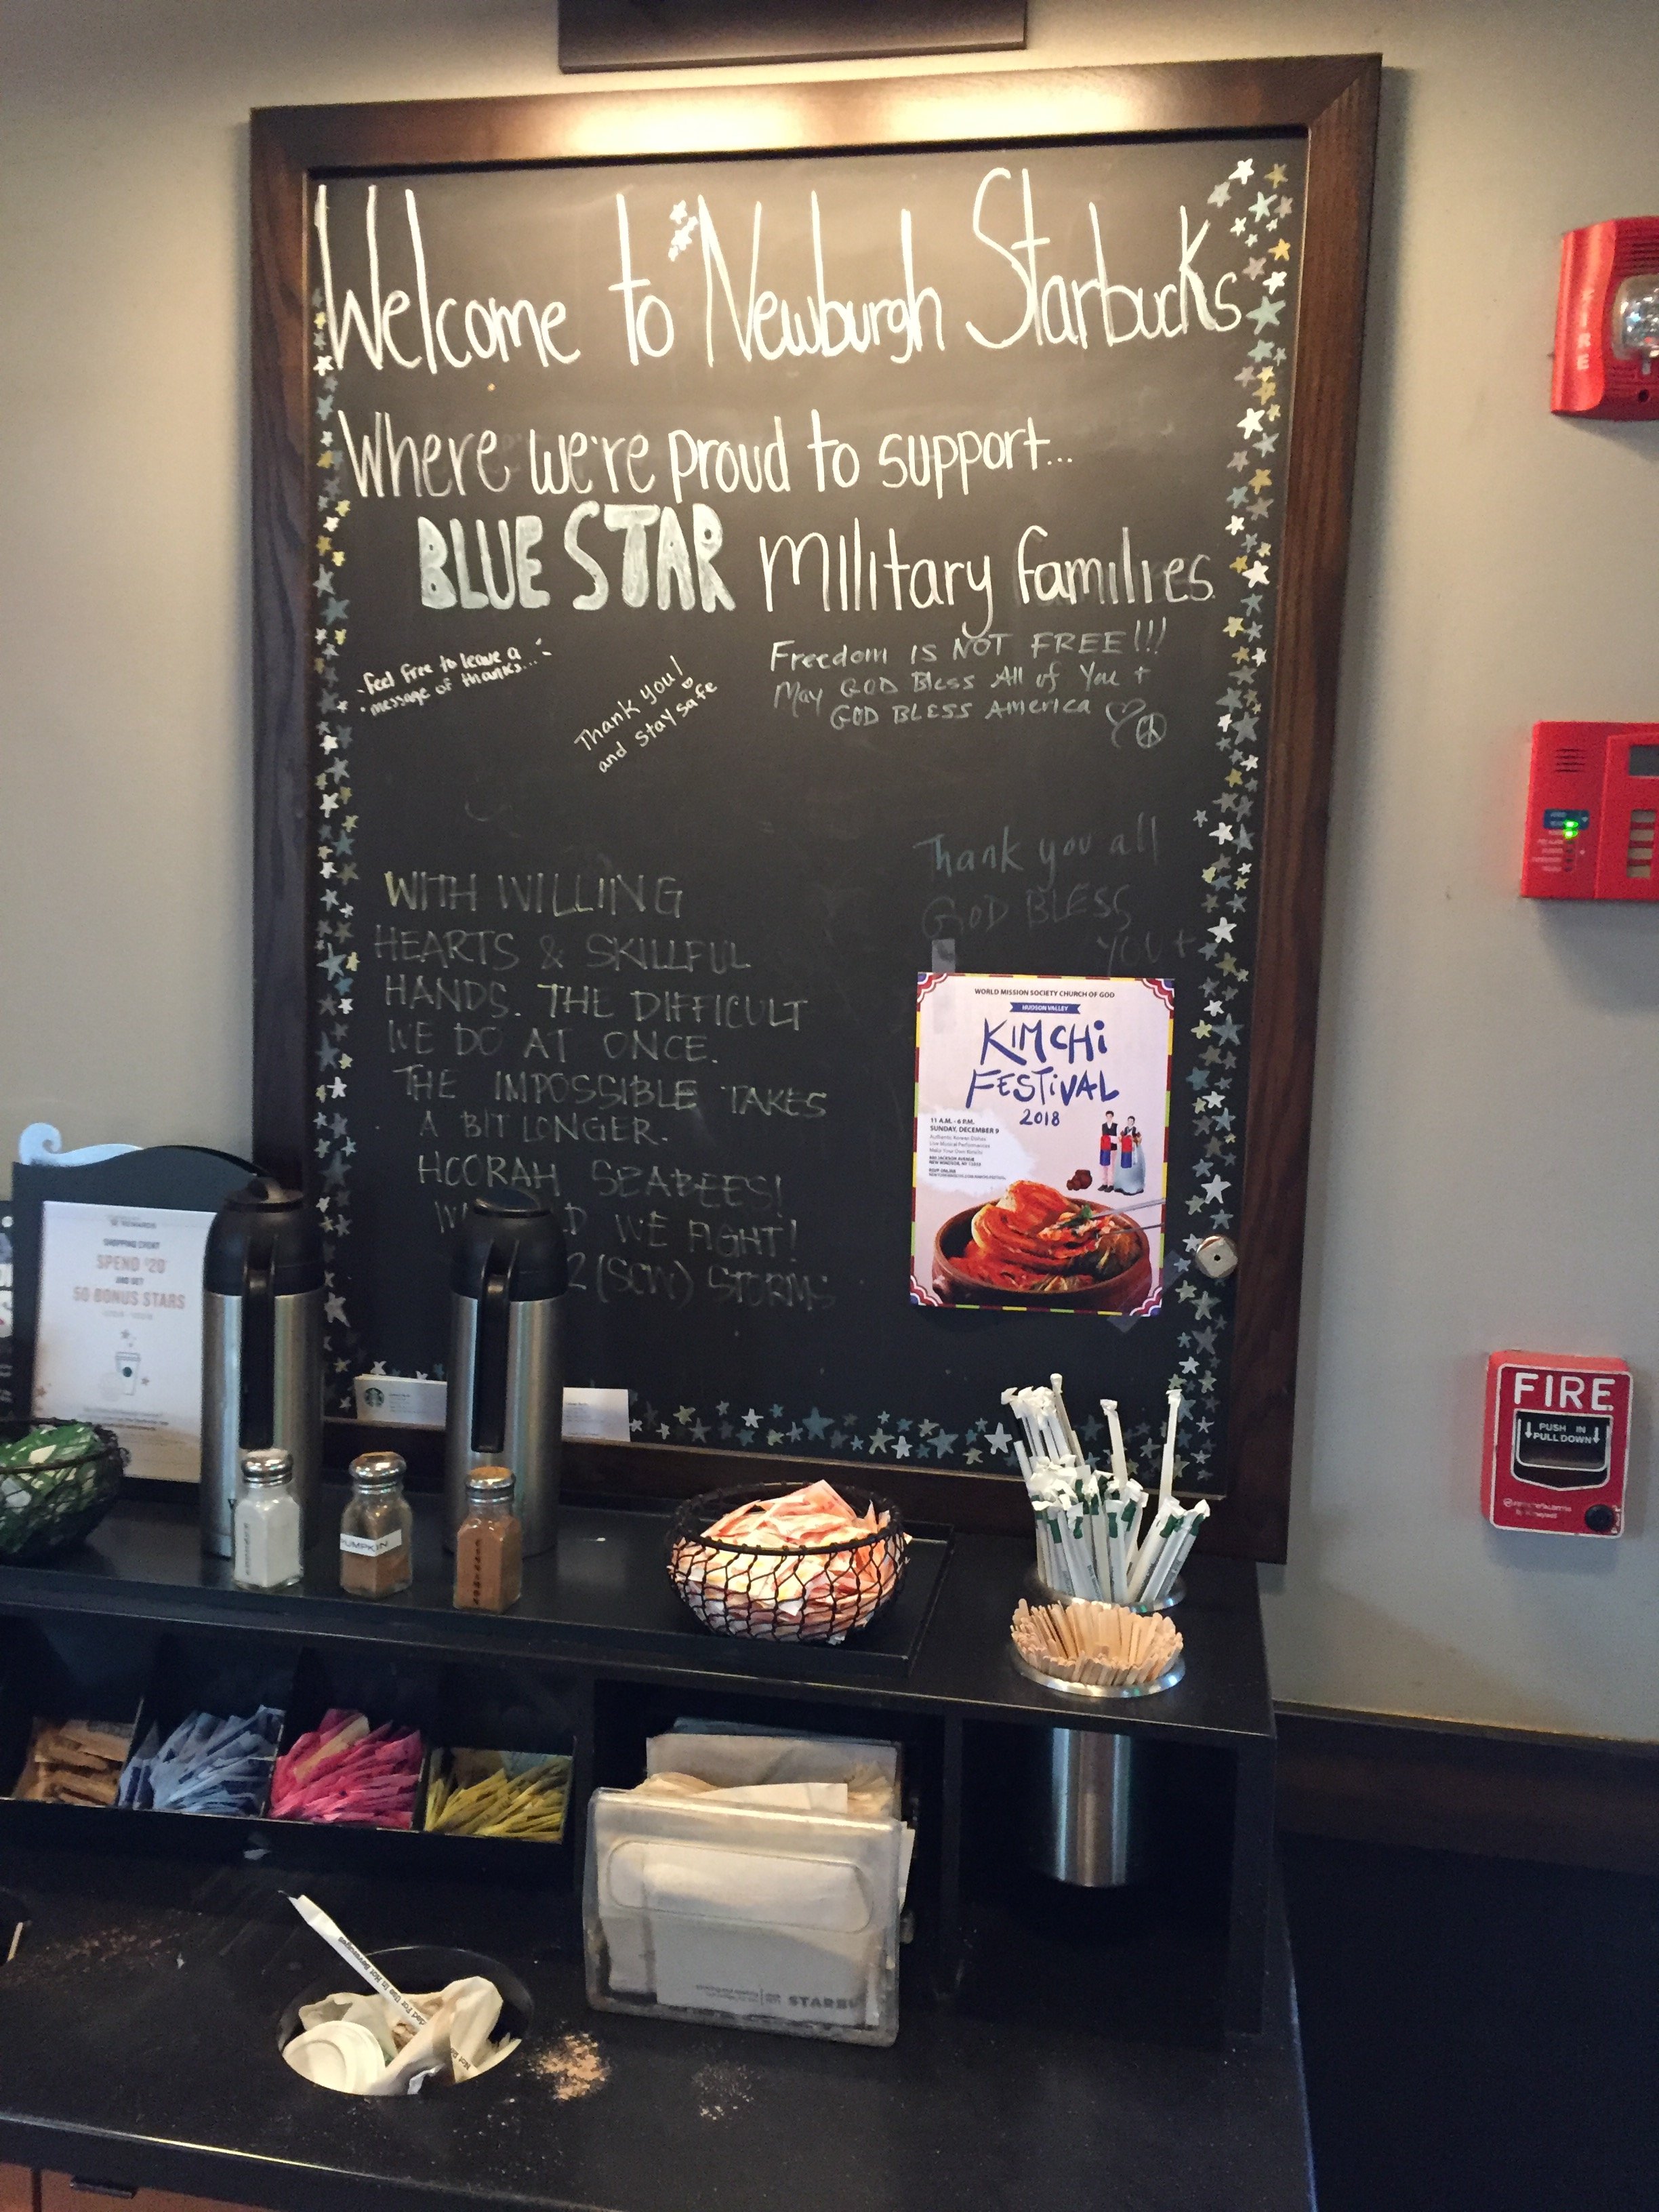 Welcome to Newburgh Starbucks
Where we're proud to support...
BLUE STAR military families.
feel free to leave a
message of thanks...
Thank you!
and stay safe
Freedom IS NOT FREE!!!
May GOD Bless All of You +
GOD BLESS America
Thank you all
GOD BLESS
you +
WITH WILLING
HEARTS & SKILLFUL
HANDS. THE DIFFICULT
WE DO AT ONCE.
THE IMPOSSIBLE TAKES
A BIT LONGER.
HOORAH SEABEES!
WE FIGHT!
2 (SCW) STORMS
WORLD MISSION SOCIETY CHURCH OF GOD
HUDSON VALLEY
KIMCHI
FESTIVAL
2018
11 A.M. - 6 P.M.
SUNDAY, DECEMBER 9
Authentic Korean Dishes
Live Musical Performances
Make Your Own Kimchi
JACKSON AVENUE
NEW WINDSOR, NY
RSVP ONLINE
REWARDS
SPEND $20
AND GET
50 BONUS STARS
PUMPKIN
FIRE
FIRE
PUSH IN
PULL DOWN
Honeywell
STARBU